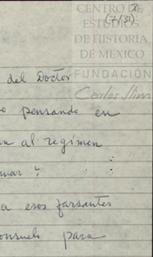 CENTRO DE
ESTUDIOS
DE HISTORIA
DE MEXICO
FUNDACIÓN
Carlos Slim
del Doctor
pensando en
al regimen
a esos farsantes
consuelo para